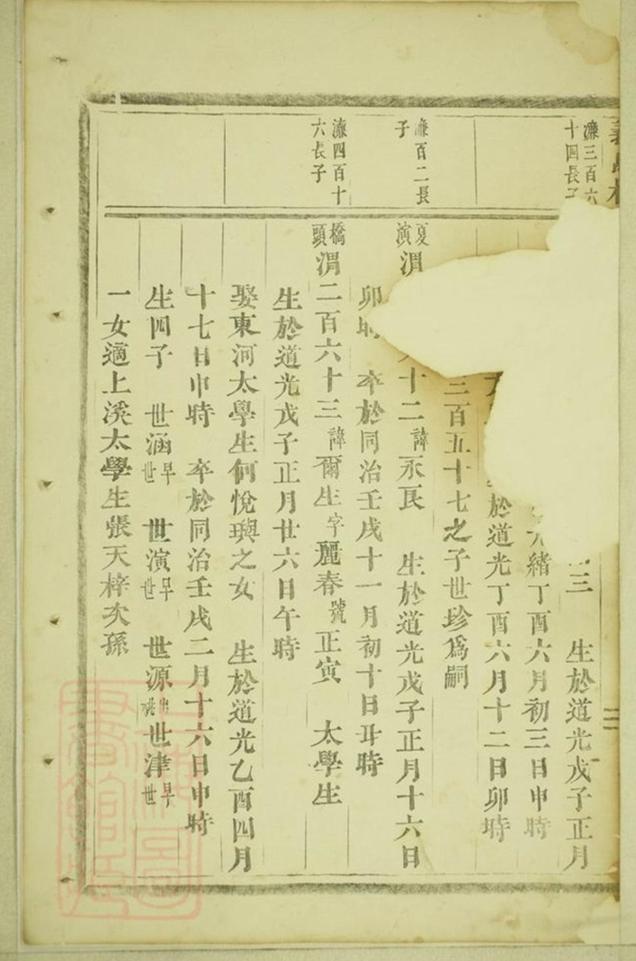 濂三百六
十四長子
三 生於道光戊子正月
緒丁酉六月初三日申時
於道光丁酉六月十二日卯時
三百五十七之子世珍為嗣
濂百二長
子
夏
演
渭
十二諱永良 生於道光戊子正月十六日
卯時 卒於同治壬戌十一月初十日丑時
濂四百十
六長子
橋
頭
渭二百六十三諱爾生字麗春號正寅 太學生
生於道光戊子正月廿六日午時
娶東河太學生何悅璵之女 生於道光乙酉四月
十七日申時 卒於同治壬戌二月十六日申時
生四子 世涵早世 世演早世 世源 世津早世
一女適上溪太學生張天梓次孫